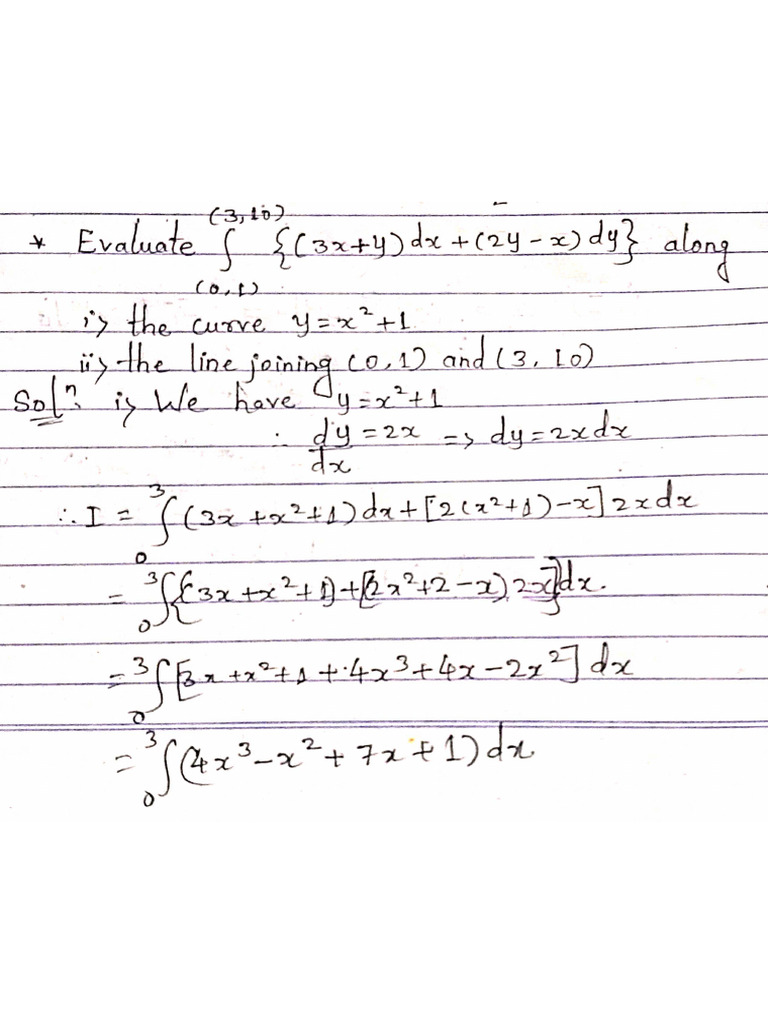 (3,10)
* Evaluate ∫ {(3x+y)dx+(2y-x)dy} along
(0,1)
i> the curve y=x²+1
ii> the line joining (0,1) and (3,10)
Solⁿ. i> We have y=x²+1
∴ dy/dx = 2x => dy=2xdx
∴ I = ₀∫³ (3x+x²+1)dx+[2(x²+1)-x]2xdx
= ₀∫³ {(3x+x²+1)+[2x²+2-x)2x]}dx.
= ₀∫³ [3x+x²+1+4x³+4x-2x²]dx
= ₀∫³ (4x³-x²+7x+1)dx